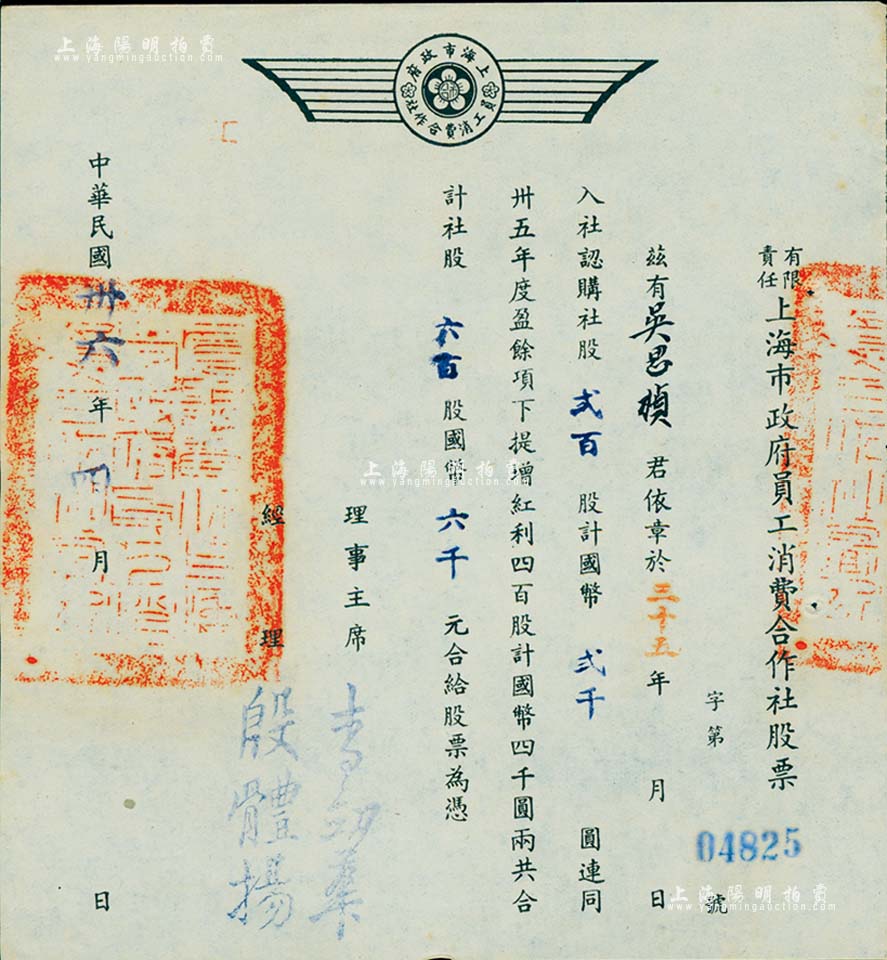 上海市政府
員工消費合作社
有限責任上海市政府員工消費合作社股票
字第04825號
茲有吳思楨君依章於三十五年 月 日
入社認購社股弍百股計國幣弍千圓連同
卅五年度盈餘項下提增紅利四百股計國幣四千圓兩共合
計社股六百股國幣六千元合給股票為憑
理事主席
經理 殷體揚
中華民國卅六年四月 日
上海陽明拍賣
www.yangmingauction.com
上海陽明拍賣
www.yangmingauction.com
上海陽明拍賣
www.yangmingauction.com